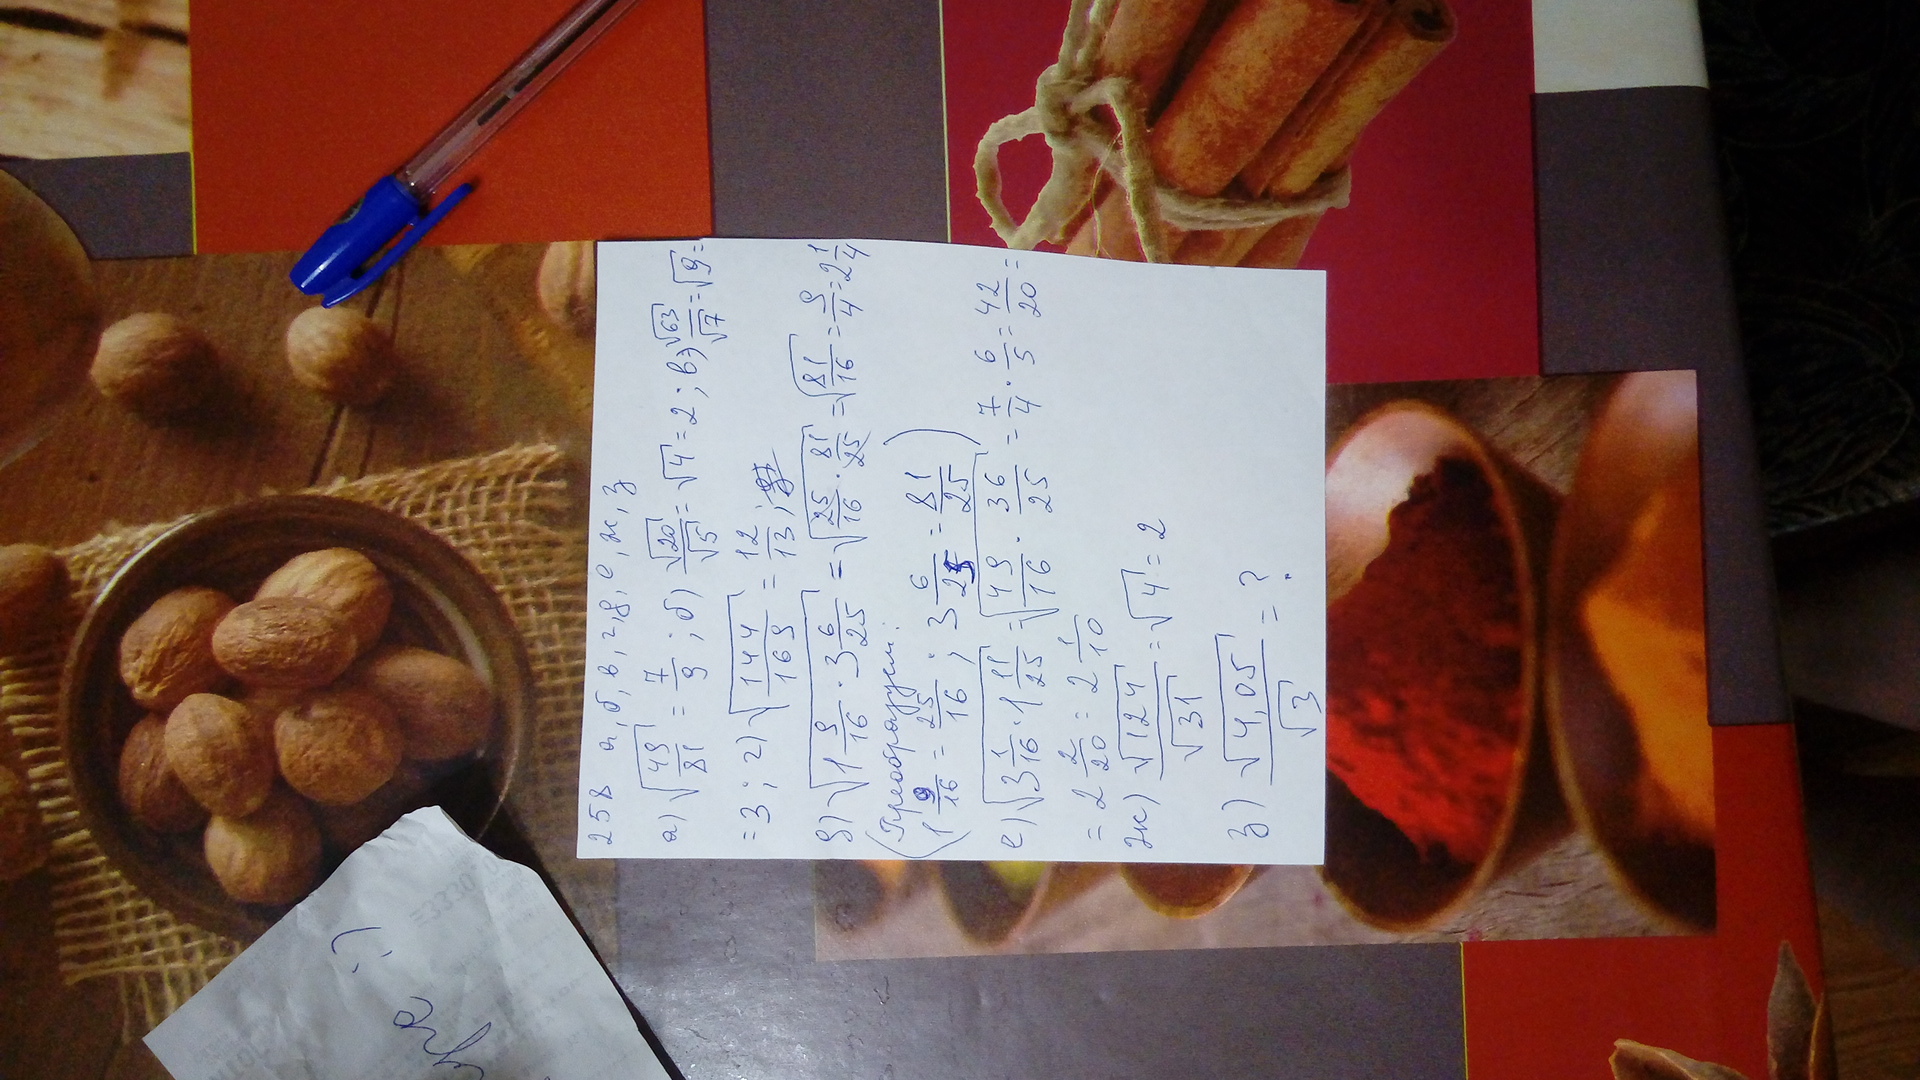 258 а, б, в, г, д, е, ж, з
а) √(49/81) = 7/9 ; б) √20/√5 = √4 = 2 ; в) √63/√7 = √9 =
= 3 ; г) √(144/169) = 12/13 ;
д) √(1 9/16 · 3 6/25) = √(25/16 · 81/25) = √(81/16) = 9/4 = 2 1/4
(Преобразуем:
1 9/16 = 25/16 ; 3 6/25 = 81/25)
е) √(3 1/16 · 1 11/25) = √(49/16 · 36/25) = 7/4 · 6/5 = 42/20 =
= 2 2/20 = 2 1/10
ж) √124/√31 = √4 = 2
з) √4,05/√3 = ?
:)
=3330